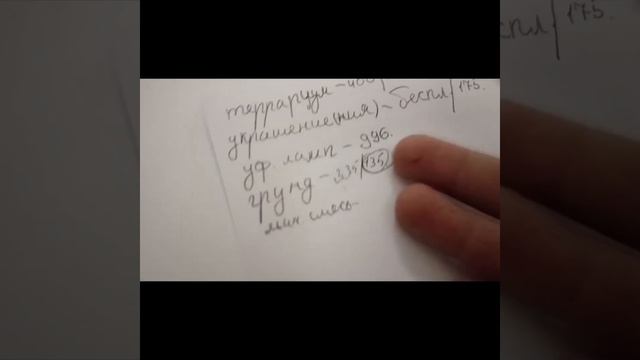 террариум -
украшение(ния) - беспл/175.
уф. ламп - 996.
грунд - 335/435
мин. смесь -